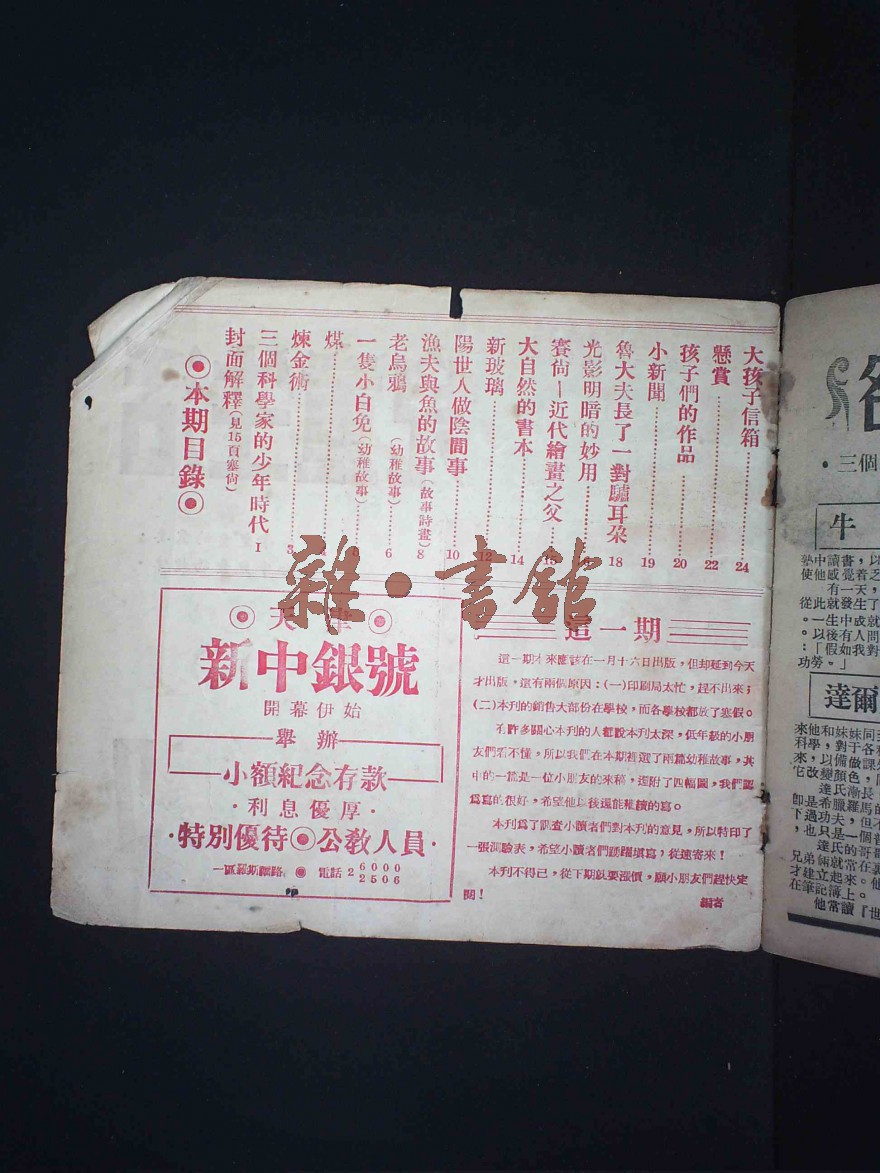 ◉本期目錄◉
封面解釋(見15頁塞尙)
三個科學家的少年時代 1
煉金術 3
煤 4
一隻小白兔(幼稚故事) 5
老烏鴉(幼稚故事) 6
漁夫與魚的故事(故事詩畫) 8
陽世人做陰間事 10
新玻璃 12
大自然的書本 14
賽尙—近代繪畫之父 15
光影明暗的妙用
魯大夫長了一對驢耳朵 18
小新聞 19
孩子們的作品 20
懸賞 22
大孩子信箱 24
雜·書館
◉天津◉
新中銀號
開幕伊始
舉辦
小額紀念存款
·利息優厚·
·特別優待◉公敎人員·
一區羅斯福路 ◉ 電話 26000 22506
這一期
這一期本來應該在一月十六日出版,但却延到今天
才出版,這有兩個原因:(一)印刷局太忙,趕不出來;
(二)本刊的銷售大部份在學校,而各學校都放了寒假。
有許多關心本刊的人都說本刊太深,低年級的小朋
友們看不懂,所以我們在本期裡選了兩篇幼稚故事,其
中的一篇是一位小朋友的來稿,還附了四幅圖,我們認
爲寫的很好,希望他以後還能繼續的寫。
本刊爲了調查小讀者們對本刊的意見,所以特印了
一張測驗表,希望小讀者們踴躍填寫,從速寄來!
本刊不得已,從下期就要漲價,願小朋友們趕快定
閱!
編者
·三個
牛
塾中讀書,以
使他感覺着乏
有一天,
從此就發生了
。一生中成就
。以後有人問
:「假如我對
功勞。」
達爾
來他和妹妹同
科學,對于各
來,以備做課
它改變顏色,
達氏漸長,
卽是希臘羅馬的
下過功夫,但
,也只是一個
達氏的哥
兄弟倆就常在
才建立起來。他
在筆記簿上。
他常讀『世